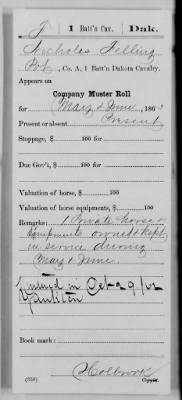 F | 1 Batt'n Cav. | Dak.
Nicholas Felling
Pvt, Co. A, 1 Batt'n Dakota Cavalry.
Appears on
Company Muster Roll
for May & June, 1863
Present or absent Present
Stoppage, $ 100 for
Due Gov't, $ 100 for
Valuation of horse, $ 100
Valuation of horse equipments, $ 100
Remarks: 1 Private horse &
Equipments owned & kept
in service during
May & June.
Enlisted in Oct 29/62
Yankton
Book mark:
Holbrook
(358) Copyist.